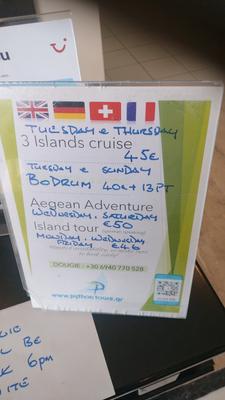 u
TUESDAY & THURSDAY
3 Islands cruise
45€
TUESDAY & SUNDAY
BODRUM 40€ + 13 PT
Aegean Adventure
WEDNESDAY, SATURDAY
Island tour €50
MONDAY, WEDNESDAY
FRIDAY €46
DOUGIE : +30 6940 770 528
www.pythontours.gr
BE
6pm